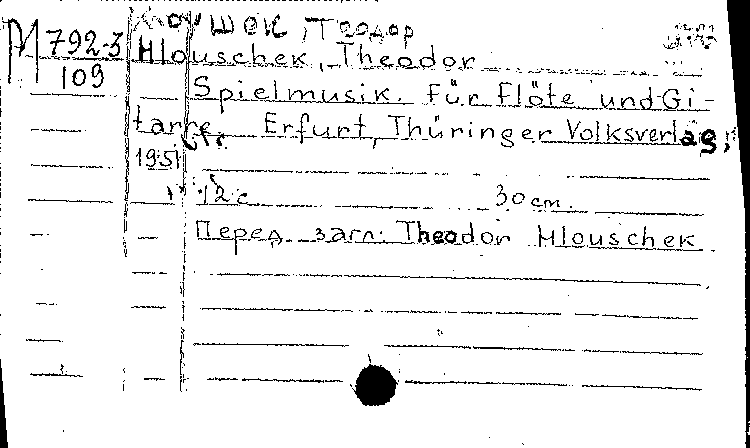 Хлоушек, Теодор
М 792-3
109
Hlouschek, Theodor
Spielmusik. Für Flöte und Gi-
tarre. Erfurt, Thüringer Volksverlag,
1951
12 с 30 cm.
Перед загл: Theodor Hlouschek